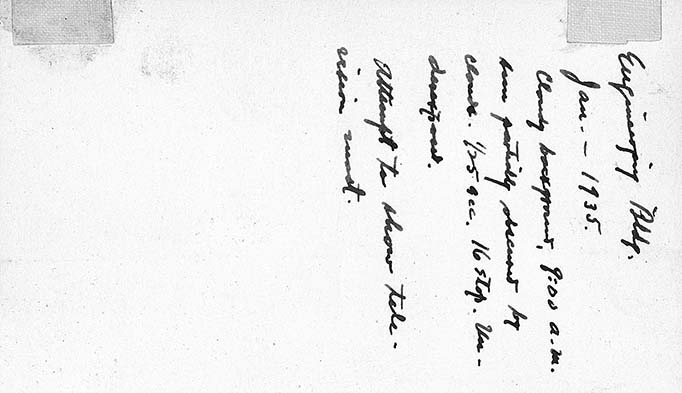 Engineering Bldg.
Jan. - 1935.
Cloudy background, 9:00 a.m.
sun partially obscured by
clouds. 1/25 sec. 16 stop. Un-
developed.
Attempt to show tele-
vision mast.